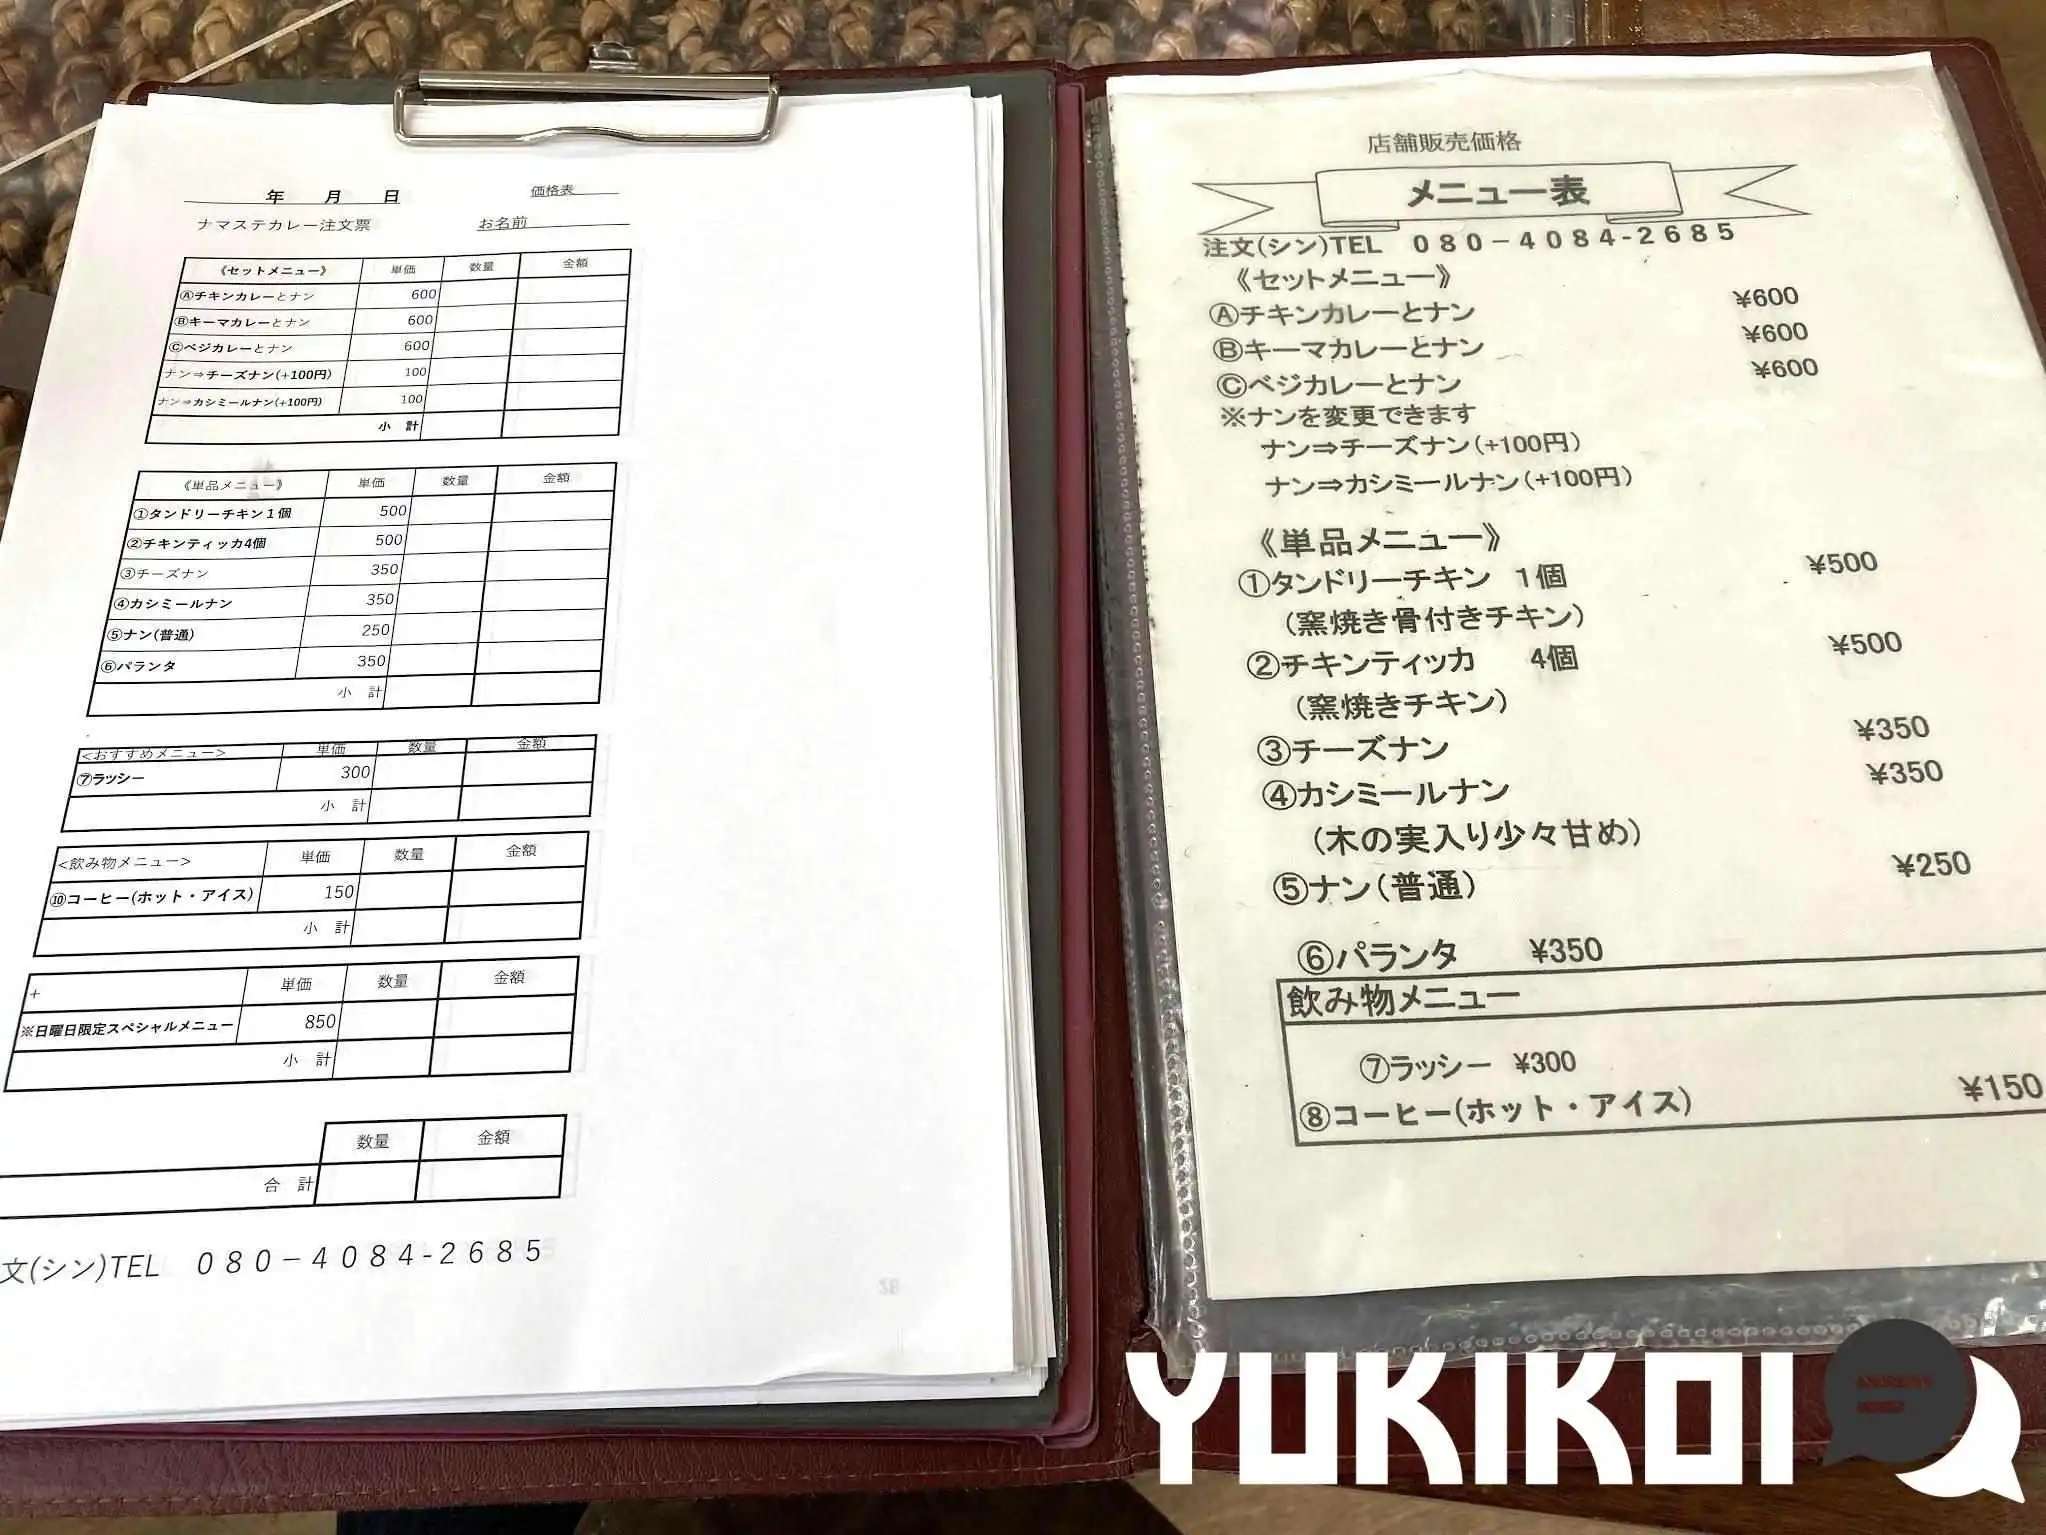 年　月　日　価格表
ナマステカレー注文票　お名前
《セットメニュー》 単価 数量 金額
Ⓐチキンカレーとナン 600
Ⓑキーマカレーとナン 600
Ⓒベジカレーとナン 600
ナン⇒チーズナン(+100円) 100
ナン⇒カシミールナン(+100円) 100
小　計
《単品メニュー》 単価 数量 金額
①タンドリーチキン１個 500
②チキンティッカ4個 500
③チーズナン 350
④カシミールナン 350
⑤ナン(普通) 250
⑥パランタ 350
小　計
<おすすめメニュー> 単価 数量 金額
⑦ラッシー 300
小　計
<飲み物メニュー> 単価 数量 金額
⑩コーヒー(ホット・アイス) 150
小　計
+ 単価 数量 金額
※日曜日限定スペシャルメニュー 850
小　計
数量 金額
合　計
文(シン)TEL　080－4084-2685
店舗販売価格
メニュー表
注文(シン)TEL　080－4084-2685
《セットメニュー》
Ⓐチキンカレーとナン ¥600
Ⓑキーマカレーとナン ¥600
Ⓒベジカレーとナン ¥600
※ナンを変更できます
ナン⇒チーズナン(+100円)
ナン⇒カシミールナン(+100円)
《単品メニュー》
①タンドリーチキン　１個 ¥500
(窯焼き骨付きチキン)
②チキンティッカ　4個 ¥500
(窯焼きチキン)
③チーズナン ¥350
④カシミールナン ¥350
(木の実入り少々甘め)
⑤ナン(普通) ¥250
⑥パランタ　¥350
飲み物メニュー
⑦ラッシー　¥300
⑧コーヒー(ホット・アイス) ¥150
YUKIKOI